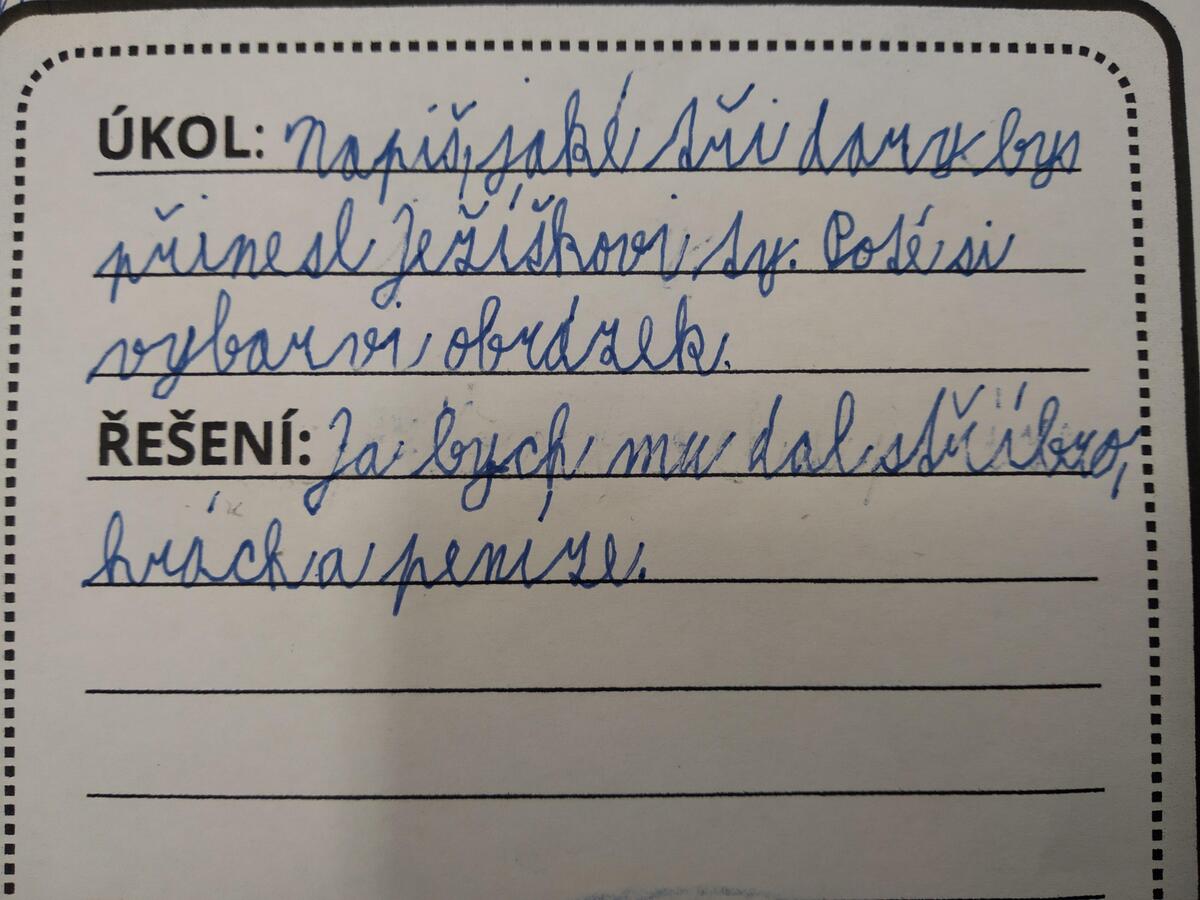 ÚKOL: Napiš, jaké tři dary bys
přinesl Ježíškovi, ty. Poté si
vybarvi obrázek.
ŘEŠENÍ: Ja bych mu dal stříbro,
hrách a peníze.